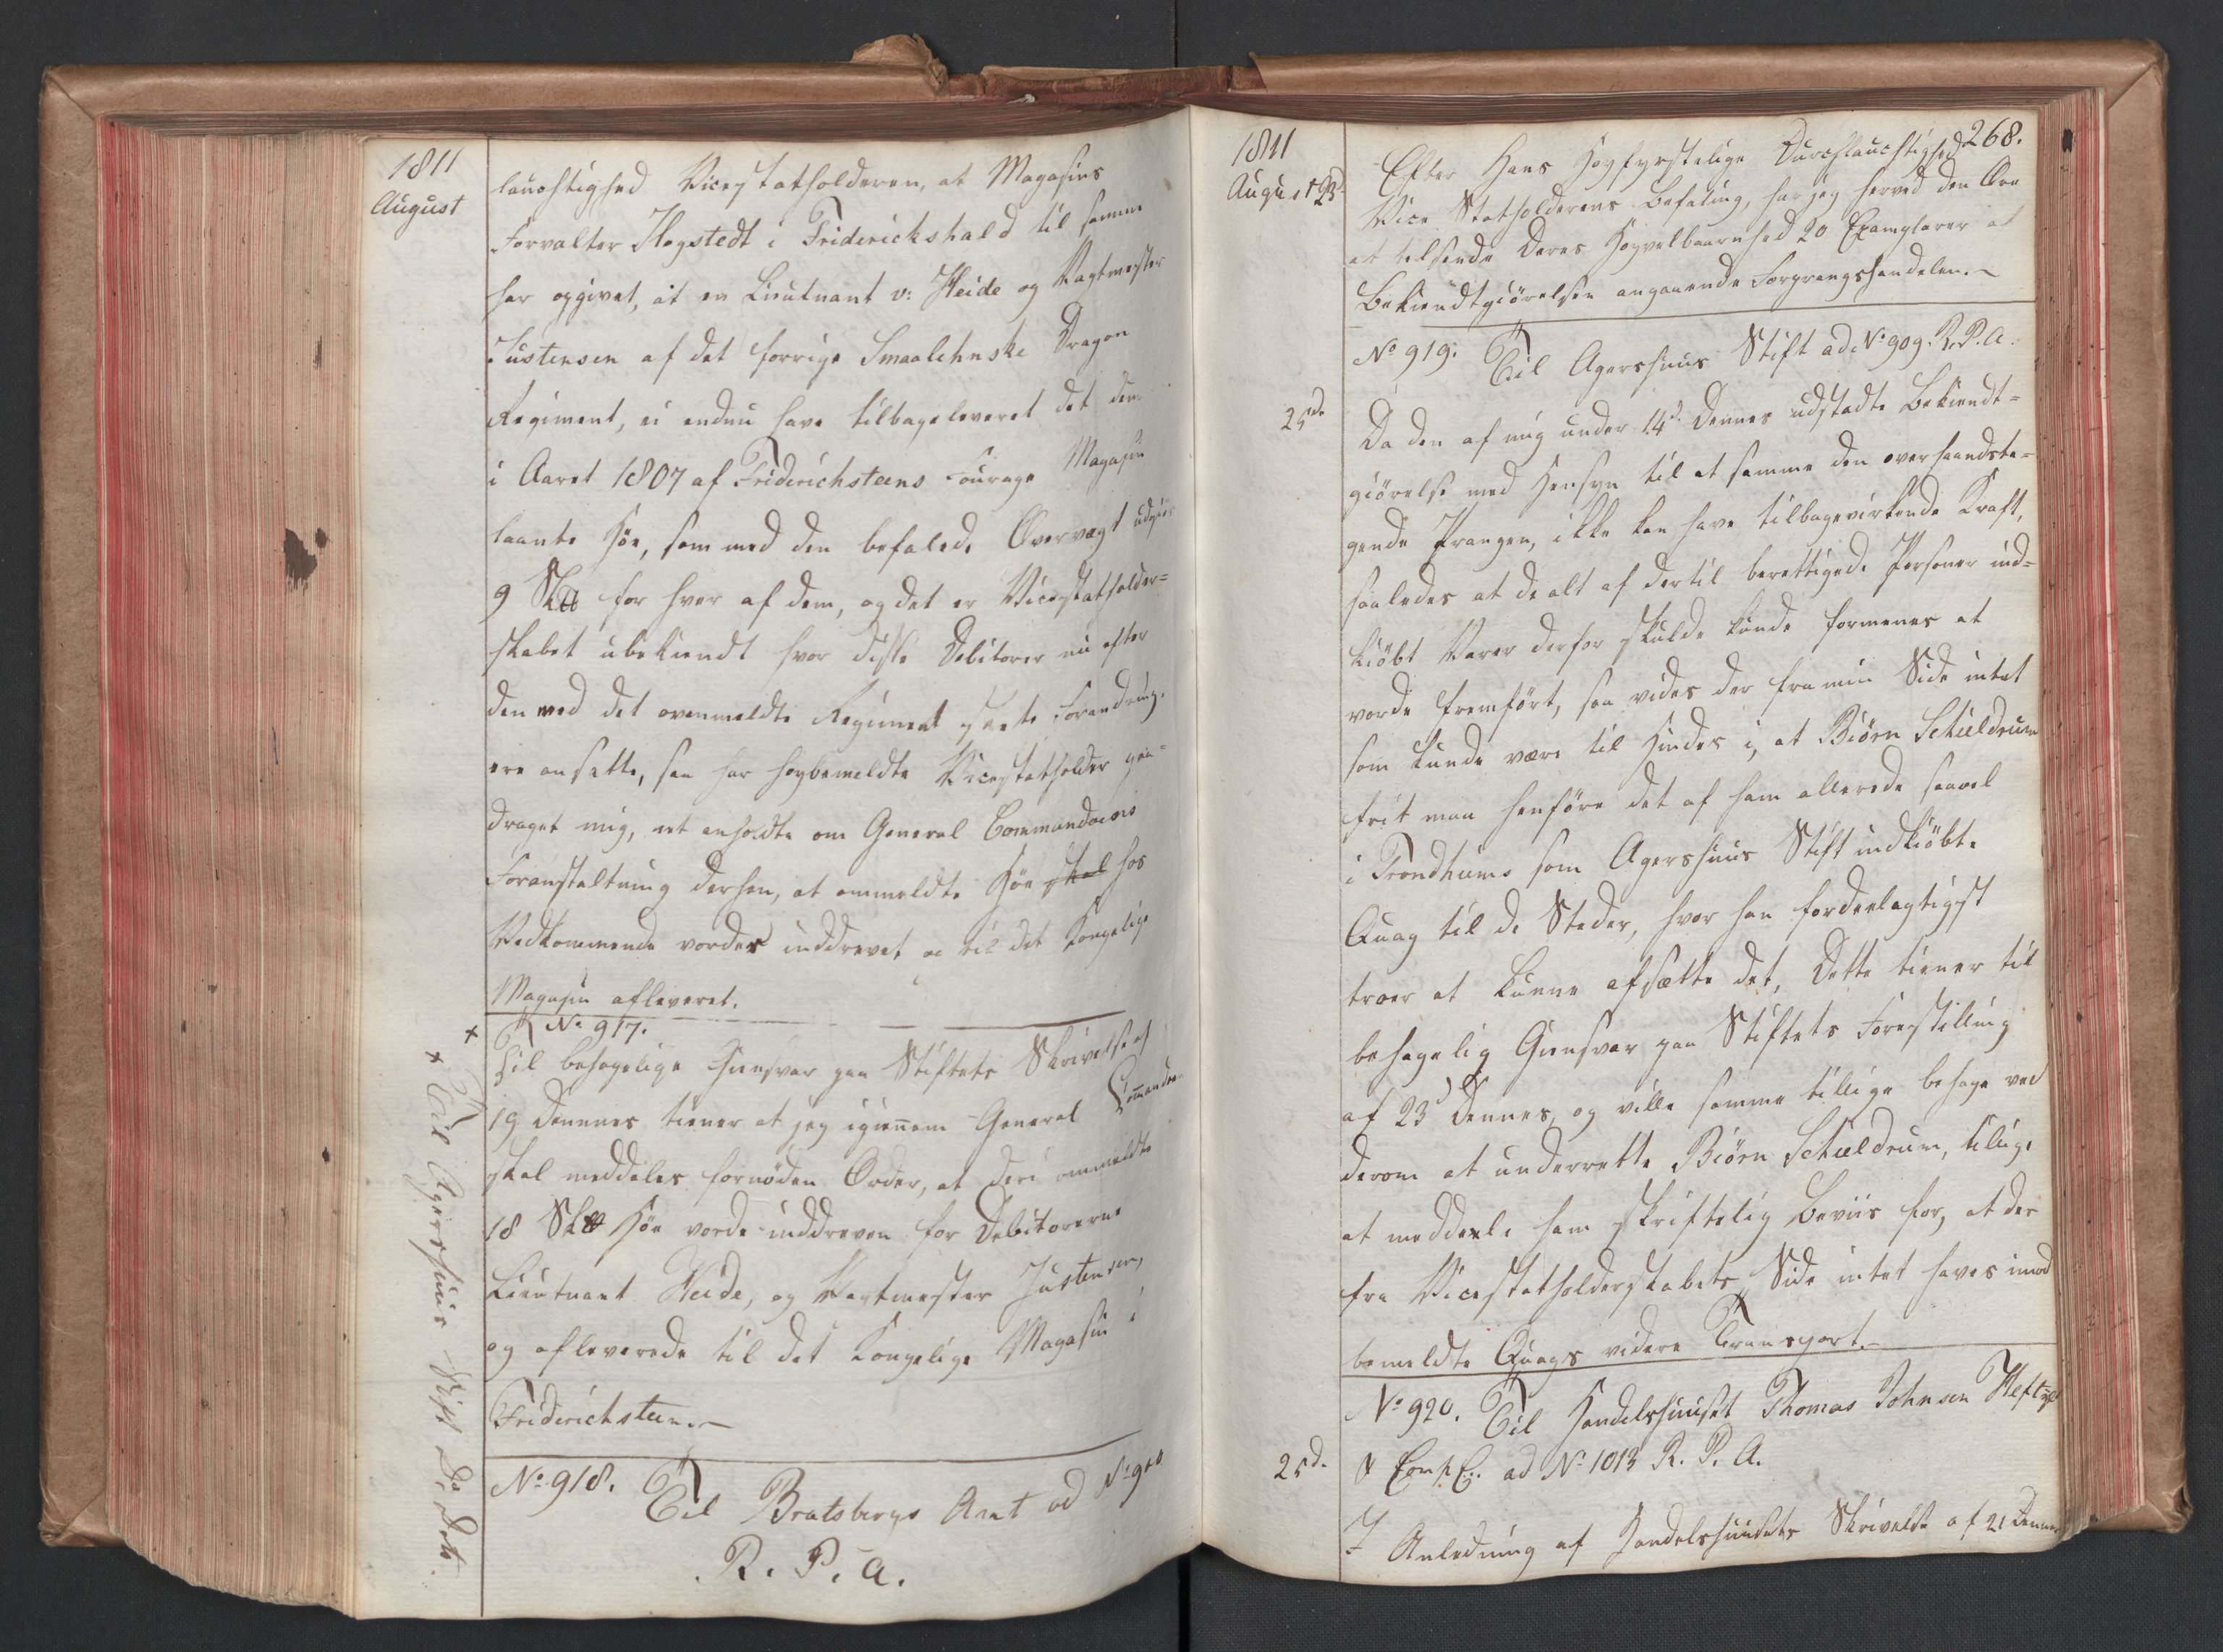 1811
August
lauchtighed Vicestatholderen, at Magasins
Forvalter Hogstedt i Friderickshald til samme
har opgivet, at en Lieutnant v: Heide og Vagtmester
Justensen af det forrige Smaalehnske Dragon
Regiment, ei endnu have tilbageleveret det dem
i Aaret 1807 af Friderichsteens Fourage Magasin
laante Høe, som med den befalede Overvægt udgiør
9 Sk℔ for hver af dem, og det er Vicestatholder-
skabet ubekiendt hvor disse Debitorer nu efter
den med det ovenmeldte Regiment skeete Forandring.
ere ansatte, saa har høybemeldte Vicestatholder paa-
draget mig, at anholdte om General Commandoens
Foranstaltning derhen, at ommeldte Høe skal hos
Vedkommende vorder inddrevet og til det Kongelige
Magasin afleveret.
+ No 917.
Til behagelige Giensvar paa Stiftets Skrivelse af
19 Dennes tiener at jeg igiennem General Commandoen
skal meddeles fornøden Order, at deri ommeldte
18 Sk℔ Høe vorde inddreven for Debitorerne
Lieutnant Heide, og Vagtmester Justensen,
og afleverede til det Kongelige Magasin i
Friderichsteen.
+ Til Agershuus Stift Do Dato.
No 918. Til Bratsbergs Amt ad No 910
R. P. A.
268.
1811
August 23d
Efter Hans Høyfyrstelige Durchlauchtighed
Vice Statholderens Befaling, har jeg herved den Ære
at tilsende Deres Høyvelbaarnhed 20 Exemplarer af
Bekiendtgiørelsen angaaende Forprangshandelen.
No 919. Til Agershuus Stift ad No 909 R. P. A.
25de
Da den af mig under 14d Dennes udstædte Bekiendt-
giørelse med Hensyn til at hemme den overhaandta-
gende Prangen, ikke kan have tilbagevirkende Kraft,
saaledes at de alt af dertil berettigede Personer ind-
kiøbt Varer derfor skulde kunde formenes at
vorde fremført, saa vides der fra min Side intet
som kunde være til Hinder i, at Biørn Schieldrum
frit maa henføre det af ham allerede saavel
i Trondhiems som Agershuus Stift indkiøbte
Qvæg til de Steder, hvor han fordeelagtigst
troer at kunne afsætte det, Dette tiener til
behagelig Giensvar paa Stiftets Forestilling
af 23d Dennes, og ville samme tillige behage ved
derom at underrette Biørn Schieldrum, tillige
at meddeele ham skriftelig Beviis for, at der
fra Vicestatholderskabets Side intet haves imod
bemeldte Qvægs videre Transport.
No 920. Til Handelshuuset Thomas Johnsen Heftye
25d.
& Comp. ad No 1013 R. P. A.
I Anledning af Handelshuusets Skrivelse af 21 Dennes